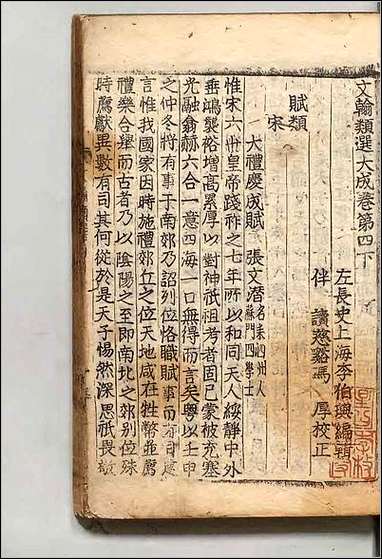 文翰類選大成卷第四下
左長史上海李伯璵編輯
伴讀慈谿馮厚校正
賦類
宋
大禮慶成賦 張文潛 名耒泗州人 蘇門四學士
惟宋六世皇帝踐祚之七年所以和同天人綏靜中外
垂鴻襲裕增高累厚以對神祇祖考者固已蒙被充塞
光融翕赫六合一意四海一口無得而言矣粤以壬申
之仲冬將有事于南郊乃詔列位恪職賦事而有司建
言惟我國家因時施禮郊丘之位天地咸在牲幣並薦
禮樂合舉而古者乃以陰陽之至即南北之郊別位殊
時薦獻異數有司其何從於是天子惕然深思祇畏